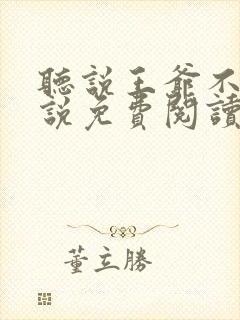 聽説王爺不
説免費閱讀
董立勝